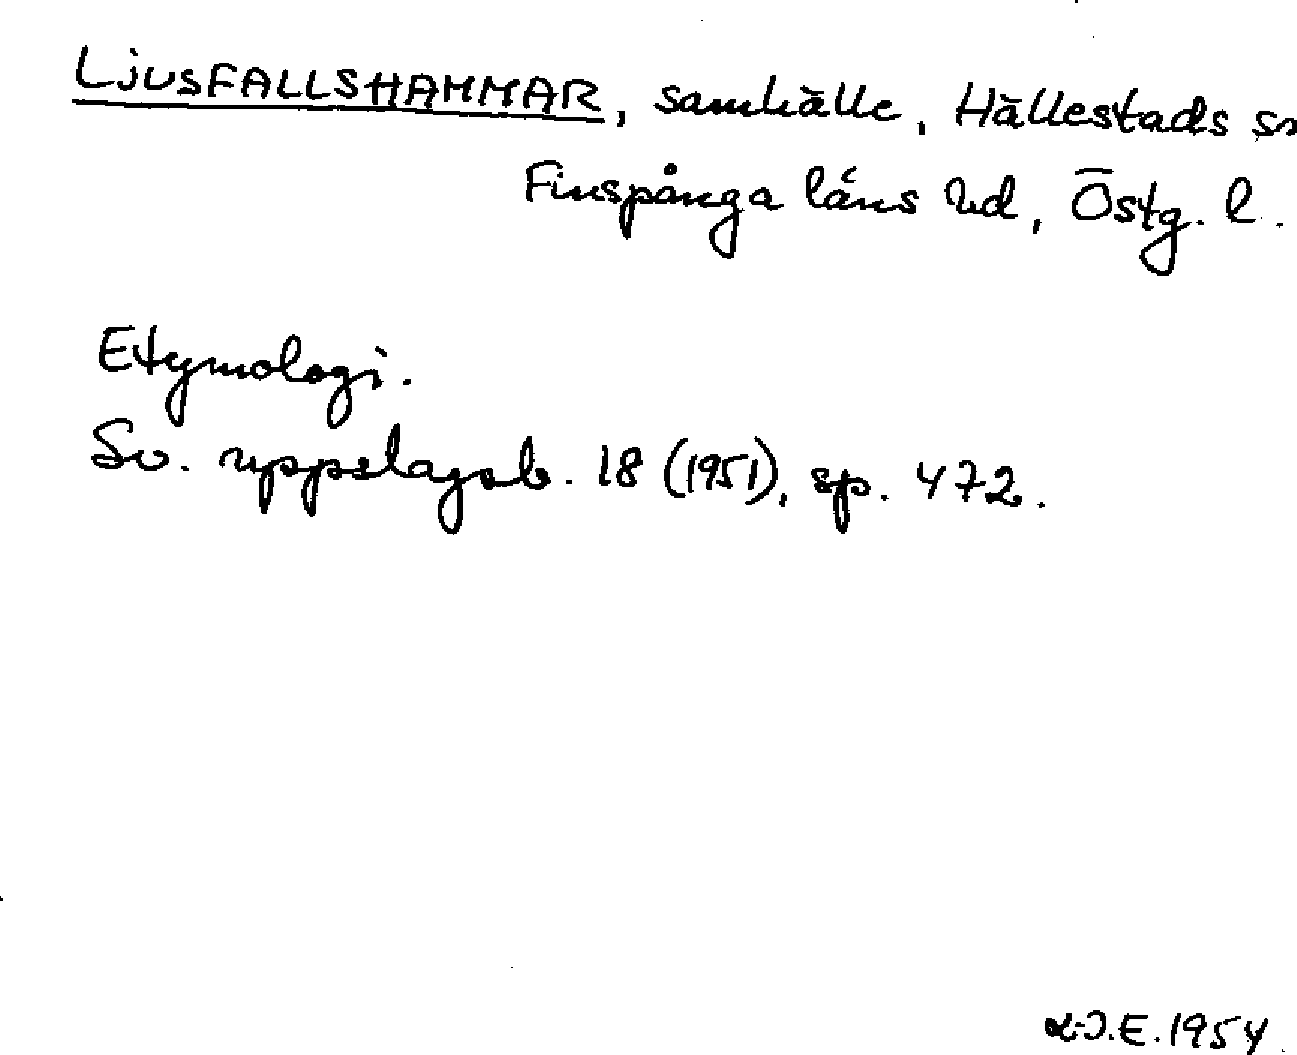 LJUSFALLSHAMMAR, samhälle, Hällestads sn
Finspånga läns hd, Östg. l.
Etymologi.
Sv. uppslagsb. 18 (1951), sp. 472.
E. 1954